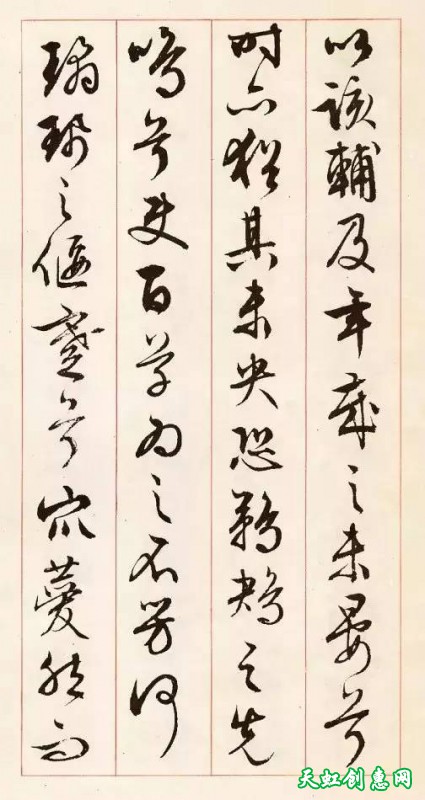 以該輔及年歲之未晏兮
時亦猶其未央恐鵜鴃之先
鳴兮使百草為之不芳何
瓊珮之偃蹇兮眾薆然而
天虹创惠网